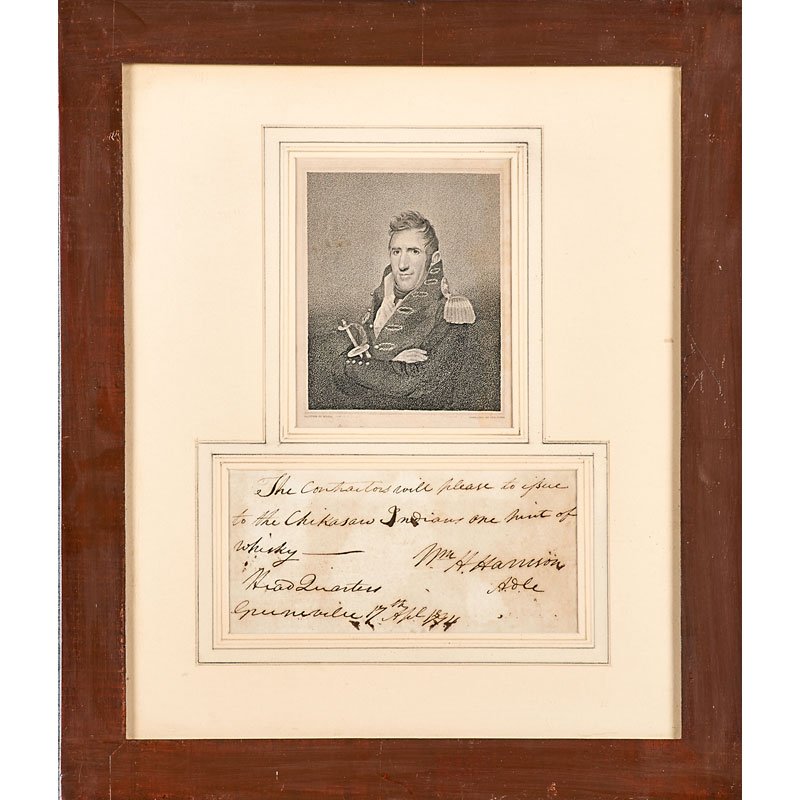 The Contractors will please to issue
to the Chikasaw Indians one pint of
whisky —
Wm H. Harrison
A.d.C
Head Quarters
Greeneville 17th Apl